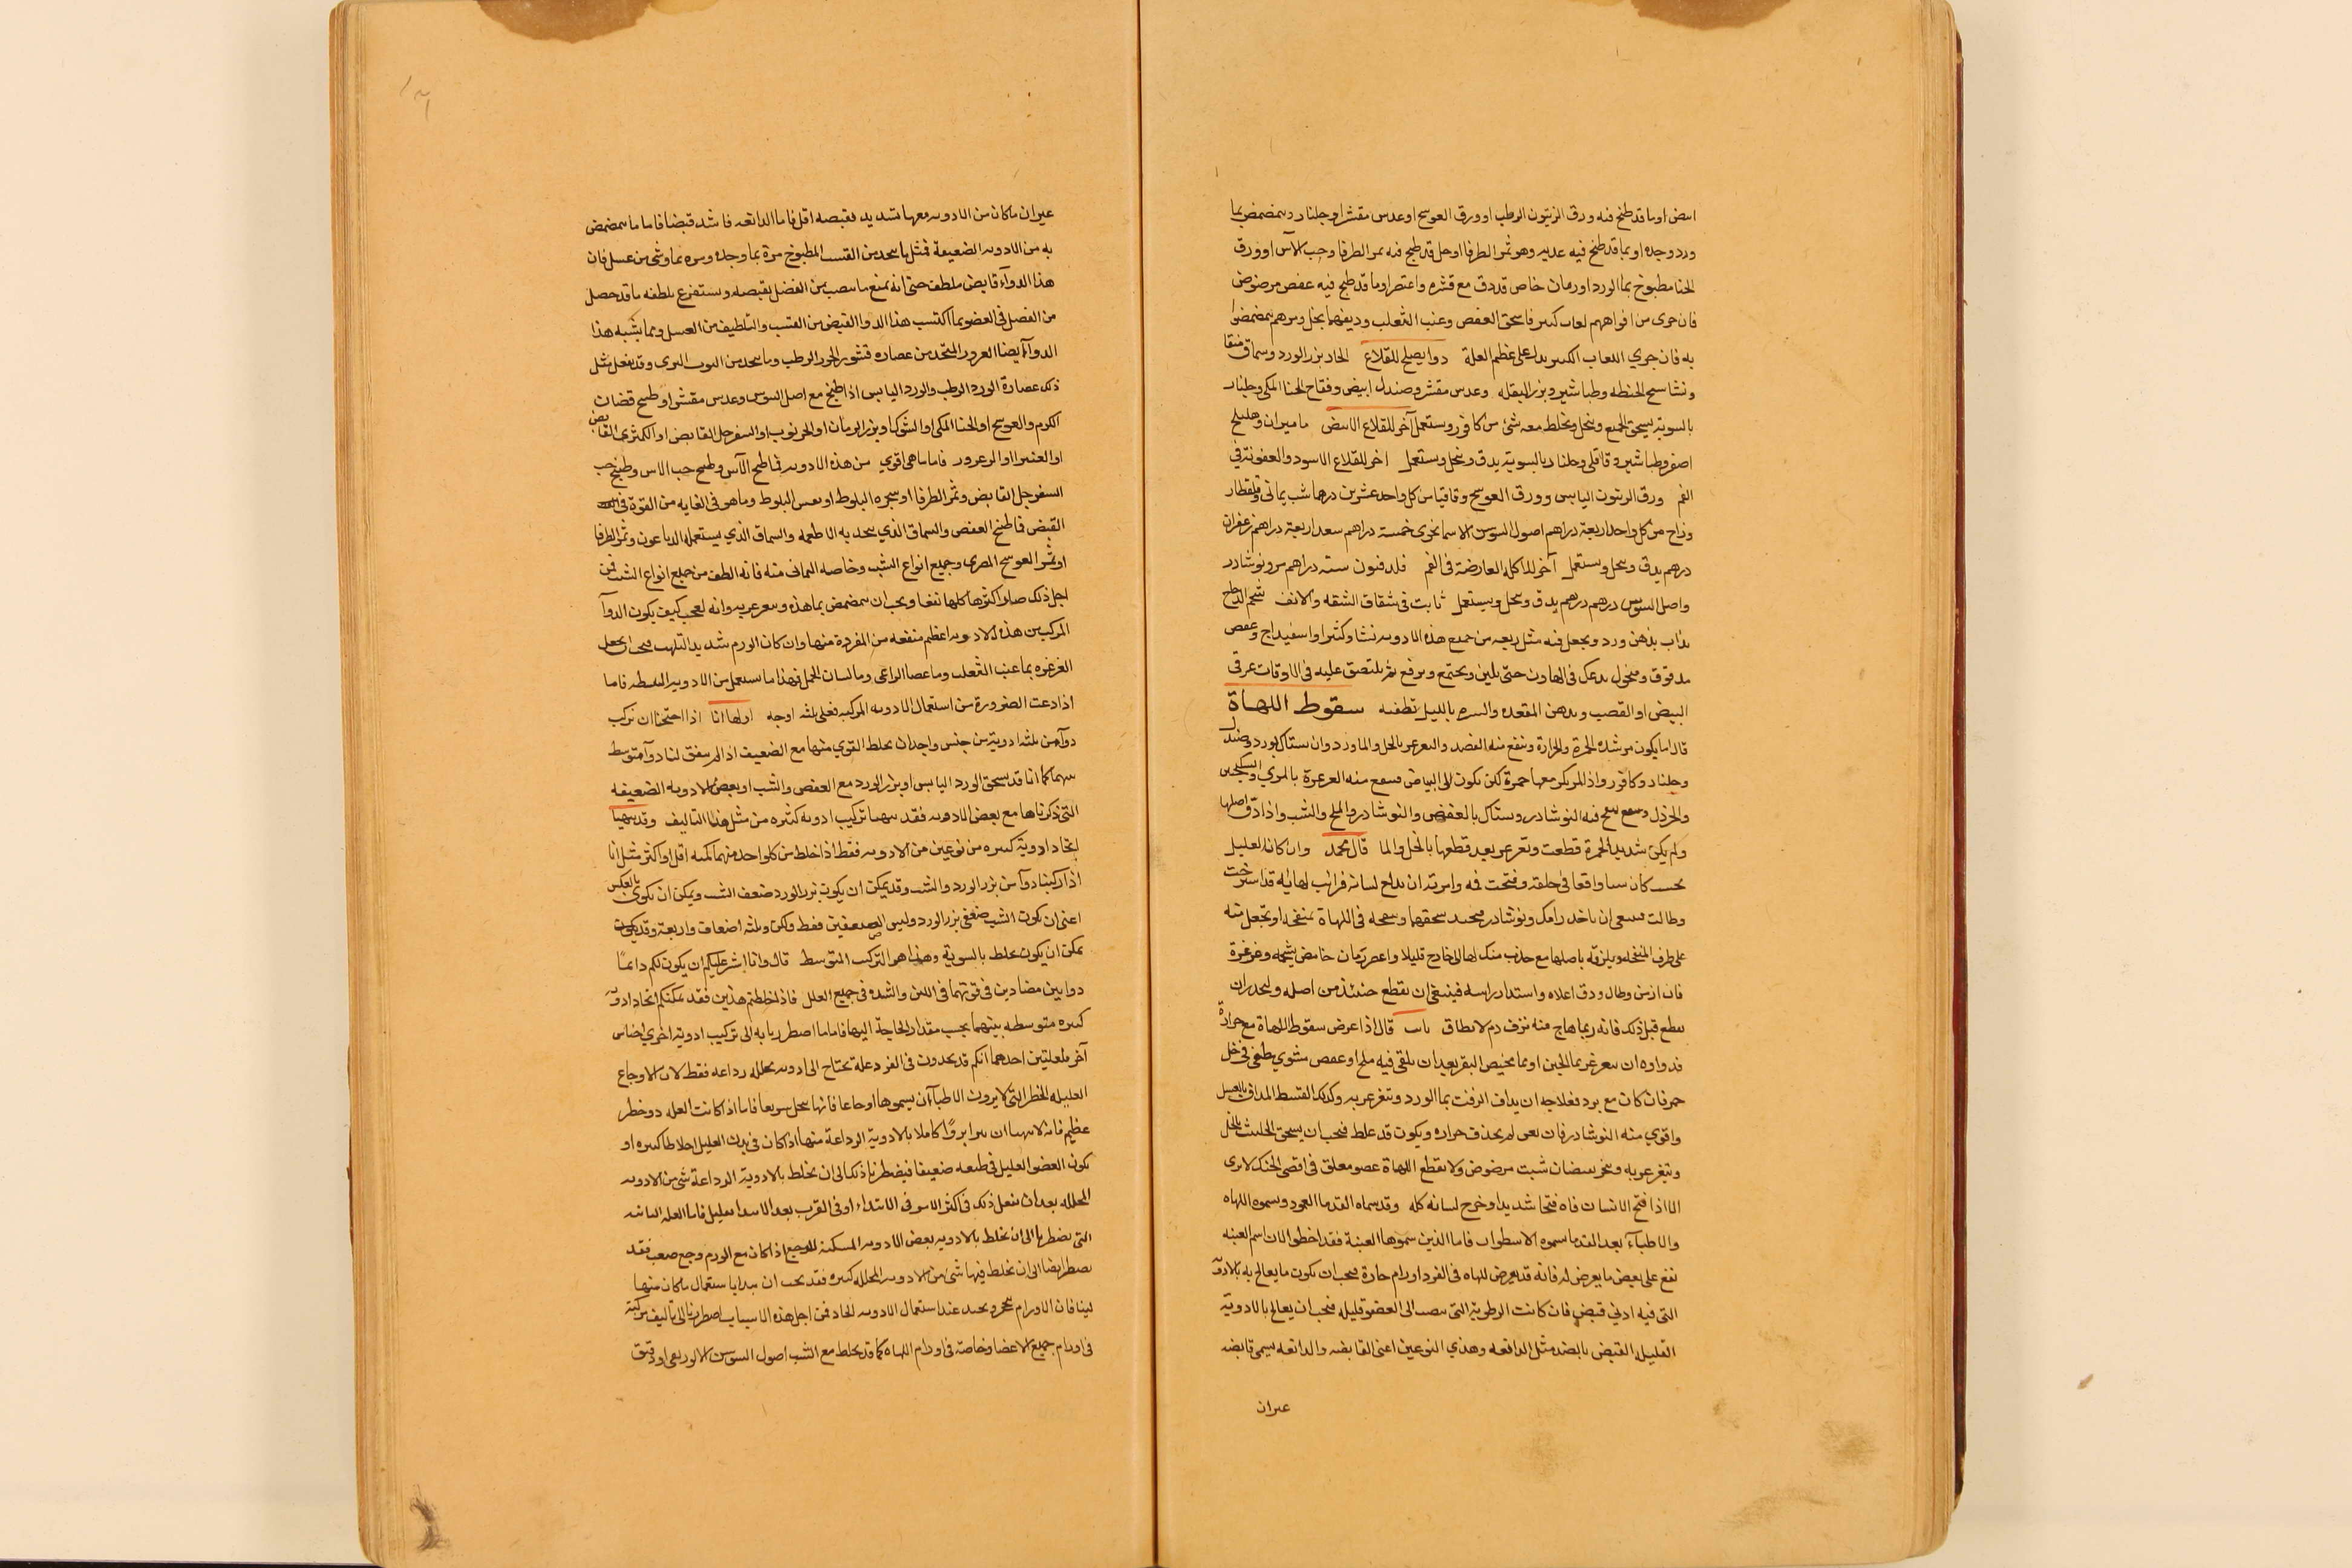 ابيض او ما قد طبخ فيه ورق الزيتون الرطب او ورق العوسج او عدس مقشر او جلنار ويتمضمض بما
ورد وحده او بما قد طبخ فيه عدس وهو ثمر الطرفا او خل قد طبخ فيه ثمر الطرفا وحب الآس او ورق
الحنا مطبوخ بما الورد او رمان حامض قد دق مع قشره واعتصر او ما قد طبخ فيه عفص مرضوض
فان جرى من افواههم لعاب كثير فاسحق العفص وعنب الثعلب وديفهما بخل ومرهم يتمضمضوا
به فان جري اللعاب الكثير يدل على عظم العلة دوا يصلح للقلاع الحاد بزر الورد وسماق منقا
ونشاستج الحنطه وطباشير وبزر البقله وعدس مقشر وصندل ابيض وفقاح الحنا المكي وجلنار
بالسوية يسحق الجميع وينخل ويخلط معه شئ من كافور ويستعمل آخر للقلاع الابيض ماميران وهليلج
اصفر وطباشير وقاقلي وجلنار بالسوية يدق وينخل ويستعمل اخر للقلاع الاسود والعفونة في
الفم ورق الزيتون اليابس وورق العوسج وقاقيا من كل واحد عشرين درهما شب يماني وقلقطار
وزاج من كل واحد اربعة دراهم اصول السوسن الاسمانجوني خمسة دراهم سعد اربعة دراهم زعفران
درهم يدق وينخل ويستعمل آخر للاكله العارضة في الفم فلدفنون ستة دراهم مر ونوشادر
واصل السوسن درهم درهم يدق وينخل ويستعمل ثابت في شقاق الشفه والانف شحم الدجاج
يذاب بدهن ورد ويجعل فيه مثل ربعه من جميع هذه الادويه نشا وكثيرا واسفيداج وعفص
مدقوق ومنخول يدعك في الهاون حتى يلين ويجتمع ويرفع ثم يلتصق عليه في الاوقات عرقي
البيض او القصب ويدهن المقعده والسره بالليل نطفه سقوط اللهاة
قال اما يكون من شدة الحمرة والحرارة وينفع منه الفصد والتغرغر بالخل والماورد وان يستاك بورد وصندل
وجلنار وكافور واذا لم يكن معها حمرة لكن تكون الى البياض فينفع منه الغرغرة بالمري والسكنجبين
والخردل وينفخ فيه النوشادر ويستاك بالعفص والنوشادر والملح والشب واذا دق اصلها
ولم يكن شديد الحمرة قطعت وتغرغر بعد قطعها بالخل والما قال محمد وان كان العليل
يحسب كان شيا واقعا في حلقه وفتحت فمه وامرته ان يدلع لسانه فرايت لهاته قد استرخت
وطالت فينبغي ان ياخذ رامك ونوشادر فيجيد سحقهما وينفخه في اللهاة بمنفخه او تجعل منه
على طرف المنفخه ويلزقه باصلها مع جذب منك لها الى خارج قليلا واعصر رمان حامض بشحمه وغرغره
فان ازمن وطال ودق اعلاه واستدار راسه فينبغي ان تقطع حينئذ من اصله وليحذر ان
يقطع قبل ذلك فانه ربما هاج منه نزف دم لا يطاق باب قال اذا عرض سقوط اللهاة مع حرارة
فدواوه ان يتغرغر بما الجبن او بما مخيض البقر بعد ان يلقى فيه ملح او عفص مشوي يطفى في خل
خمر فان كان مع برد فعلاجه ان يداف الزفت بما الورد ويتغرغر به وكذلك القسط المداف بالعسل
واقوي منه النوشادر فان بقى لم يحدث حراره ويكون قد غلظ فيجب ان يسحق الحلتيت بالخل
ويتغرغر به وينخر بقضبان شبت مرضوض ولا تقطع اللهاة عضو معلق في اقصى الحنك لا يرى
الا اذا فتح الانسان فاه فتحا شديدا وخرج لسانه كله وقد سماه القدما العمود وسموه اللهاه
والاطباء بعد القدما سموه الاسطوان فاما الذين سموها العنبة فقد اخطوا لان اسم العنبه
تقع على بعض ما يعرض له فانه قد يعرض للهاه في الفرد اورام حارة فيجب ان يكون ما يعالج به بالادويه
التي فيه ادني قبض فان كانت الرطوبة التي تنصب الى العضو قليله فيجب ان يعالج بالادوية
القليله القبض بالبضد مثل الدافعه وهذي النوعين اعني القابضه والدافعه يسمى قابضه
عيران
عيران ما كان من الادويه معها تشديد فقبضه اقل فاما الدافعه فاشد قبضا فاما ما يتمضمض
به من الادويه الضعيفة فمثل ما يتخذ من القسب المطبوخ مرة بما وحده ومره بما وشي من عسل فان
هذا الدواء قابض ملطف حتى انه يمنع ما ينصب من الفضل بقبضه ويستفرغ بلطفه ما قد حصل
من الفضل في العضو بما اكتسب هذا الدوا القبض من القسب والتلطيف من العسل ومما يشبه هذا
الدوآء ايضا الغرور المتخذ من عصاره قشور الجوز الرطب وما يتخذ من التوت البرى وقد يفعل مثل
ذلك عصارة الورد الرطب والورد اليابس اذا طبخ مع اصل السوس وعدس مقشر او طبيخ قضبان
الكرم والعوسج او الحنا المكي او الشوك او بزر الرمان او الخرنوب او السفرجل القابض او الكمثرى القابض
او الغبيرا او الزعرور فاما ما هي اقوي من هذه الادويه فما طبيخ الآس وطبيخ حب الاس وطبيخ حب
السفرجل القابض وثمر الطرفا او شجره البلوط او نفس البلوط وما هو في الغايه من القوة في
القبض فما طبيخ العفص والسماق الذي يتخذ به الاطعمه والسماق الذي يستعمله الدباغون وثمر الطرفا
او ثمر العوسج المصرى وجميع انواع الشب وخاصه اليماني منه فانه الطف من جميع انواع الشب فمن
اجل ذلك صار اكثرها كلها نفعا ويجب ان يتمضمض بما هذه ويتغرغر به وانه لعجب كيف يكون الدوآ
المركب من هذه الادويه اعظم منفعه من المفردة منها وان كان الورم شديد التلهب فيجب ان يجعل
الغرغره بما عنب الثعلب وما عصا الراعي وما لسان الحمل فهذا ما يستعمل من الادويه البسيطه فاما
اذا دعت الضرورة من استعمال الادويه المركبه فعلى ثلثه اوجه اولها انا اذا احتجنا ان نركب
دوآ من ثلثه ادوية من جنس واحد ان يخلط القوي منها مع الضعيف اذا لم يتفق لنا دوآ متوسط
بينهما كما انا قد نسحق الورد اليابس او بزر الورد مع العفص والشب او بعض الادويه الضعيفه
التي ذكرناها مع بعض الادويه فقد يتهيا تركيب ادويه كثيره من مثل هذا التاليف وقد يتهيا
اتخاذ ادوية كثيره من نوعين من الادويه فقط اذا خلط من كل واحد منهما كميه اقل او اكثر مثل انا
اذا ركبنا دوآ من بزر الورد والشب وقد يمكن ان يكون بزر الورد ضعف الشب ويمكن ان يكون بالعكس
اعني ان يكون الشب ضعفي بزر الورد وليس الضعفين فقط ولكن وثلثه اضعاف واربعة وقد يكون
يمكن ان يكون يخلط بالسوية وهذا هو التركيب المتوسط قال وانا اشير عليكم ان يكون لكم دائما
دوايين مضادين في قوتهما في اللين والشده في جميع العلل فاذا خلطتم هذين فقد يمكنكم اتخاذ ادويه
كثيره متوسطه بينهما بحسب مقدار الحاجة اليها فاما ما اضطررنا به الى تركيب ادوية اخري اجناس
آخر فلعلتين احدهما انكم قد تجدون في الفرد علة تحتاج الى ادويه محلله رداعه فقط لان الاوجاع
العليله الخطر التي لا يرون الاطبآء ان يسموها اوجاعا فانها تنحل سريعا فاما اذا كانت العله ذو خطر
عظيم فانه لا يتهيا ان تبرا بروا كاملا بالادوية الرداعة منها اذا كان في بدن العليل اخلاط كثيره او
يكون العضو العليل في طبعه ضعيفا فيضطرنا ذلك الى ان نخلط بالادوية الرداعة شي من الادويه
المحلله بعد ان نفعل ذلك في اكثر الامر في الابتداء او في القرب بعد الابتدا بقليل فاما العله الثانيه
التي تضطرنا الى ان نخلط بالادويه بعض الادويه المسكنه للوجع اذا كان مع الورم وجع صعب فقد
نضطر ايضا الى ان نخلط فيها شي من الادويه المحلله كثيره فقد يجب ان نبدا باستعمال ما كان منها
لينا فان الاورام تتحجر وتجسد عند استعمال الادويه الحاده فمن اجل هذه الاسباب اضطررنا الى تاليف مركبة
في اورام جميع الاعضا وخاصة في اورام اللهاه كما قد يخلط مع الشب اصول السوسن الاورسي او دقيق